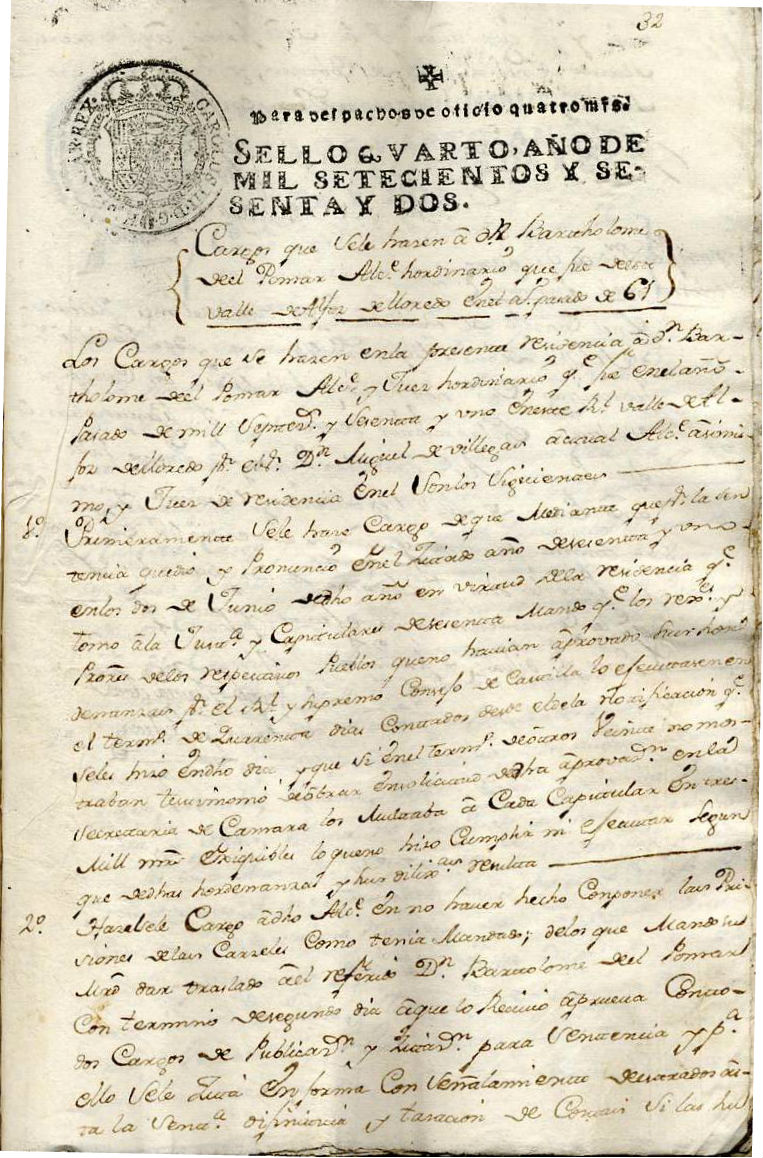 32
Para despachos de oficio quatro mrs.
SELLO QVARTO, AÑO DE
MIL SETECIENTOS Y SE-
SENTA Y DOS.
CAROLUS III D. G. HISPANIAR. REX
Cargos que sele hazen â dn Bartholome
deel Pomar Alce. hordinario que fue deeste
valle de Alfoz delloredo enel aº pasado de 61
Los Cargos que se hazen enla presente residencia â Dn. Bar-
tholome deel Pomar Alce. y Juez hordinario qe. fue enel año
Pasado de mill Septecs. y Sesenta y uno eneste Rl. valle de Al-
foz delloredo pr. el Sr. Dn. Miguel de Villegas actual Alce. asimis-
mo, y Juez de residencia enel Son los Siguientes
1º. Primeramente Sele haze Cargo de que Mediante que pr. la Sen
tencia que dio y Pronuncio enel Zitado año de sesenta y uno
enlos dos de Junio de dho año en virtud dela residencia qe.
tomo âla Justa. y Capitulares de sesenta Mando qe. los rexs. y
Prores. delos respectivos Pueblos que no havian aprovado sus hor
denanzas pr. el Rl. y Supremo Consejo de Castilla lo efectuasen en
el termo. de Quarenta dias Contados desde el dela Notificacion qe.
seles hizo en dho dia y que si enel termo. de otros Veinte no mos-
traban testimonio de obrar en solicitud de dha aprovazn. en la
Secretaria de Camara los Multaba â Cada Capitular en tres
Mill mrs. Exiquibles lo que no hizo Cumplir ni efectuar Segun
que de dhas hordenanzas y sus dilixas. resulta
2º. Hazesele Cargo â dho Alce. en no haver hecho Conponer las Pri-
siones delas Carzeles Como tenia Mandado; delos que Mando su
Mrd dar traslado âel referido Dn. Bartolome deel Pomar
Con termino de segundo dia âque lo Recivio aprueva Con to-
dos Cargos de Publicazn. y Zitazn. para Sentencia y pa.
ello Sele Zita En forma Con Señalamiento de estrados âs-
ta la Senta. difinitiva y tasacion de Costas si las hu